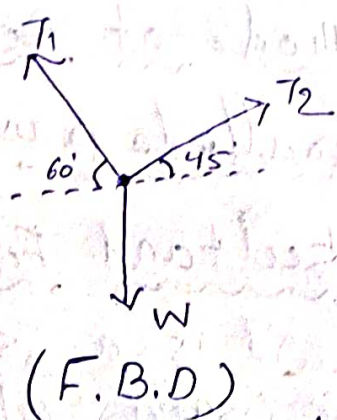 T1
T2
60°
45°
W
(F.B.D)